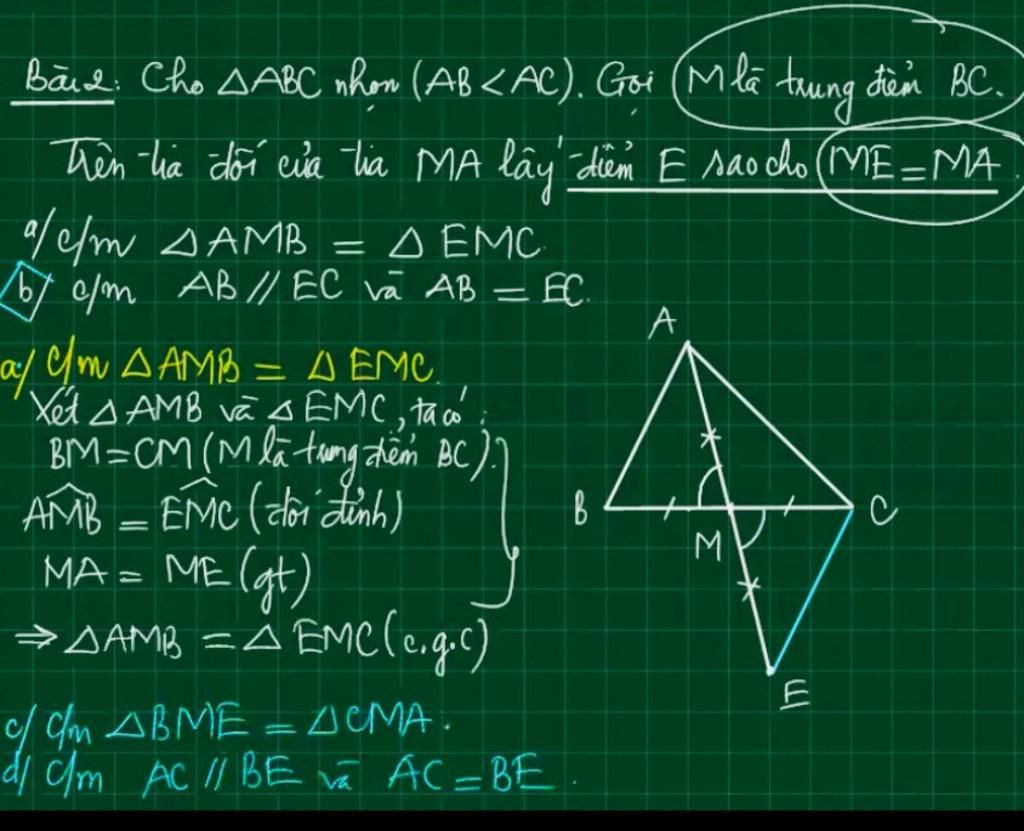 Bài 2: Cho △ABC nhọn (AB < AC). Gọi M là trung điểm BC.
Trên tia đối của tia MA lấy điểm E sao cho ME = MA.
a/ c/m △AMB = △EMC.
b/ c/m AB // EC và AB = EC.
a/ c/m △AMB = △EMC.
Xét △AMB và △EMC, ta có:
BM = CM (M là trung điểm BC).
AM̂B = EM̂C (đối đỉnh)
MA = ME (gt)
⇒ △AMB = △EMC (c.g.c)
c/ c/m △BME = △CMA.
d/ c/m AC // BE và AC = BE.
A
B
M
C
E